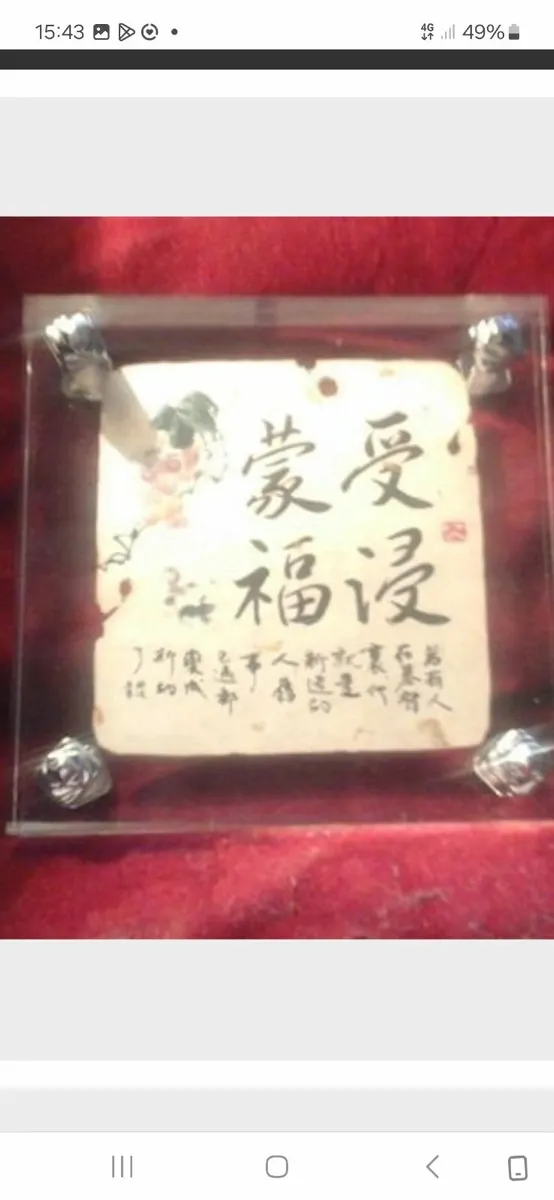 15:43
4G
49%
受浸
蒙福
若有人
在基督
裏他
就是
新造的
人舊
事
已過都
變成
新的
了